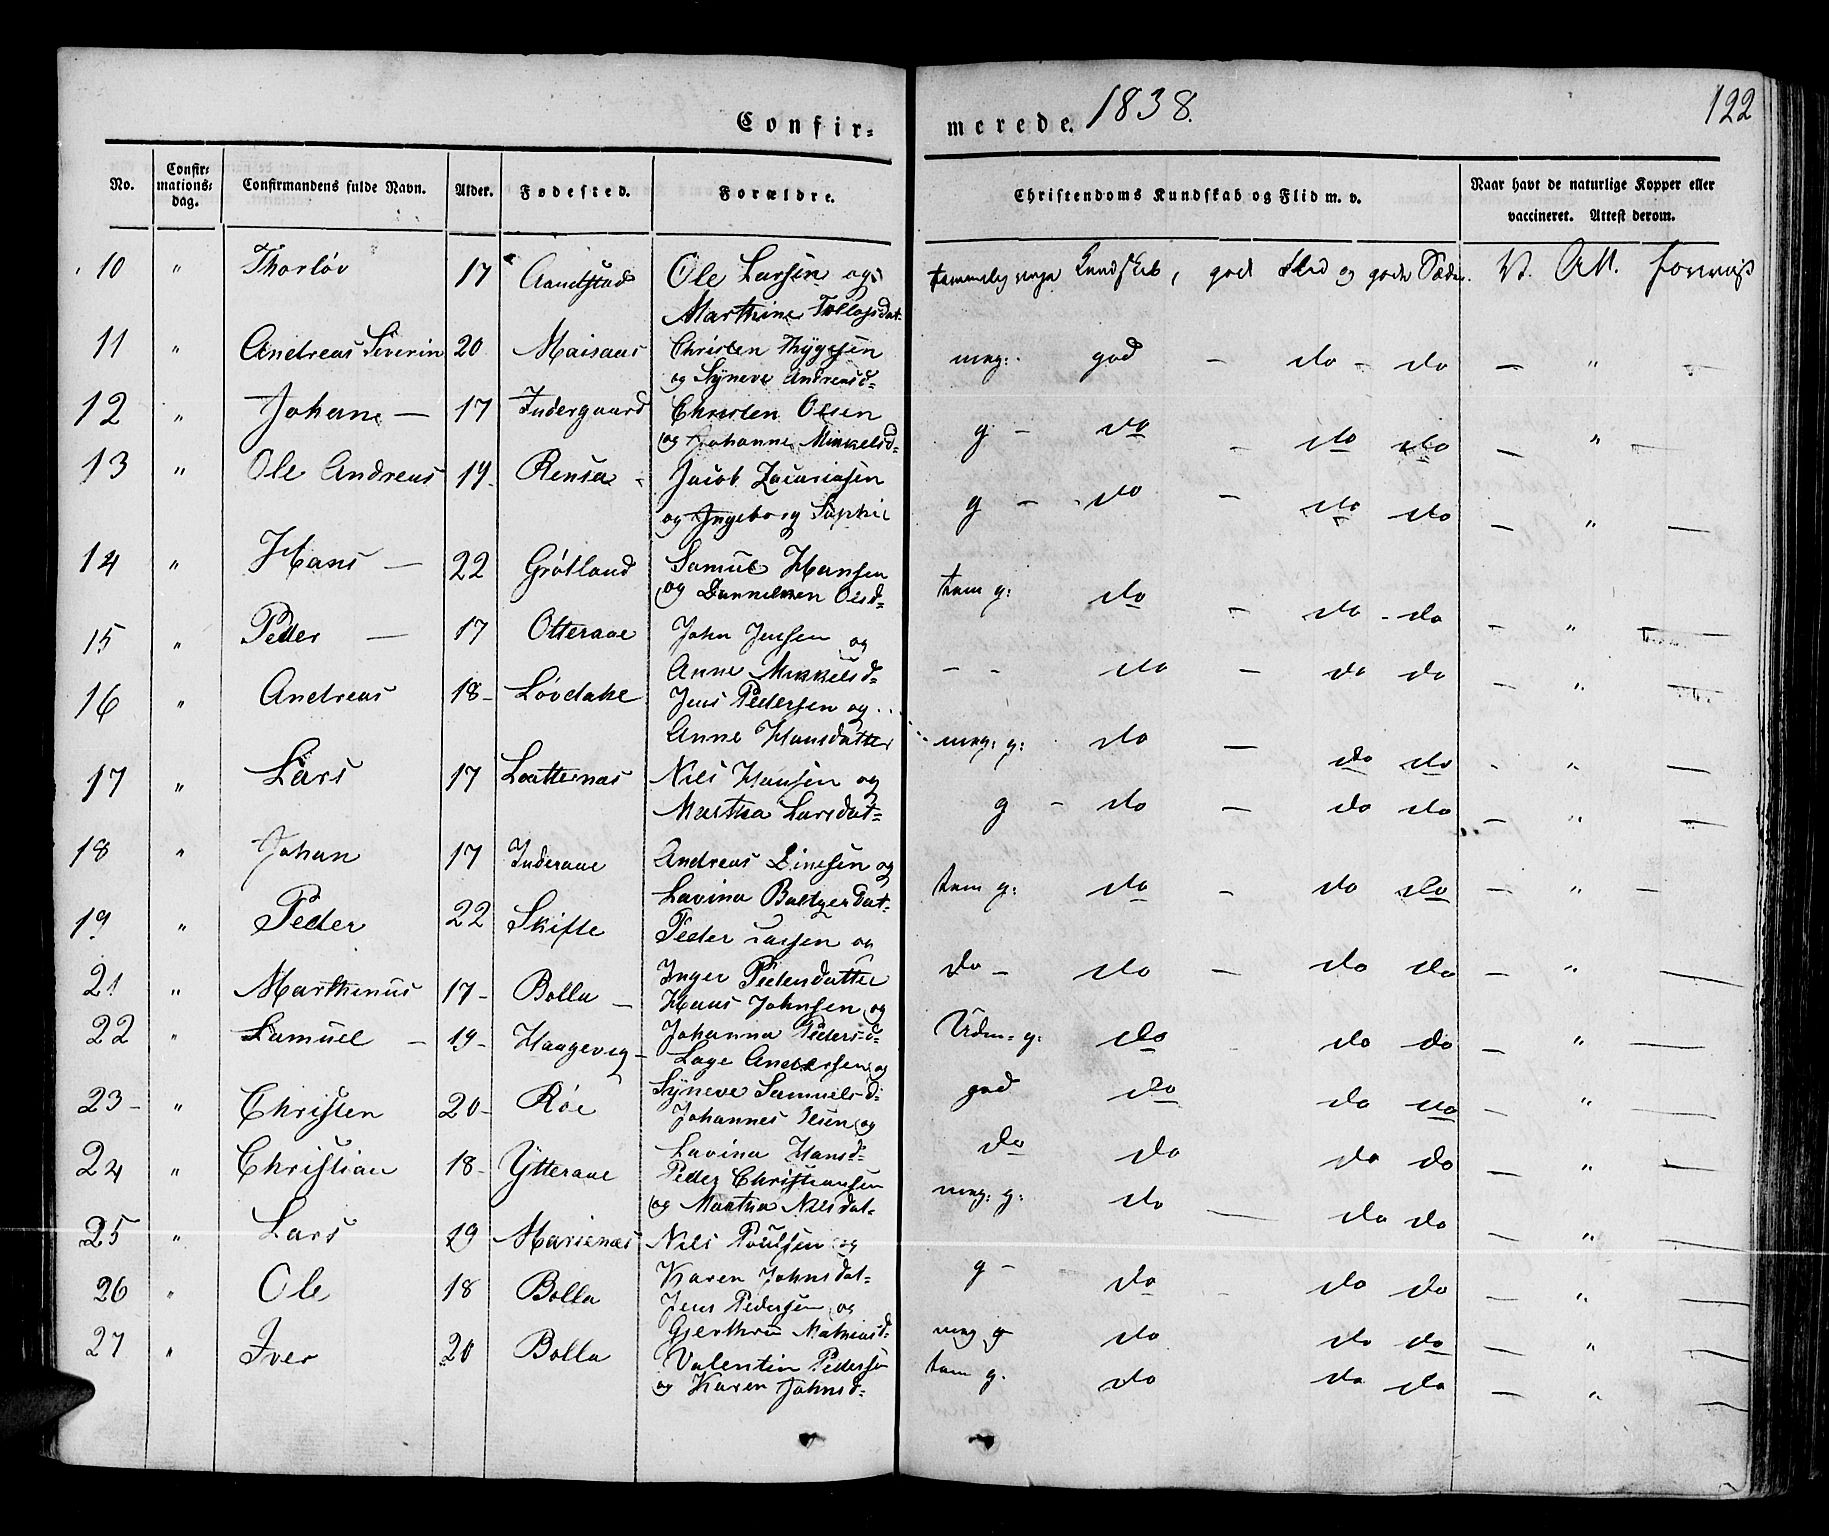 Confir- merede. 1838. 122
No. Confir-mations-dag. Confirmandens fulde Navn. Alder. Fødested. Forældre. Christendoms Kundskab og Flid m. v. Naar havt de naturlige Kopper eller vaccineret. Attest derom.
10 " Thorløv 17 Aandstad Ole Larsen og temmelig Kundskab, god Flid og gode Sæder. V. Att.
Marthine
11 " Andreas Siverin 20 Maisaas Christen Thygesen meg: god - do - do - " -
og Syneve Andreasd=
12 " Johan - 17 Indergaard Christen Olsen g - do - do do - " -
og Johanne Mikkelsd=
13 " Ole Andreas 19- Rensaa - Jacob Zacariasen g - do - do do - " -
og Ingeborg Sophie
14 " Hans - 22 Grøtland Samuel Hansen tem g: do - do - do - " -
og Olsd=
15 " Peder - 17 Otteraae John Jensen og - - do - do do - " -
Anne Mikkelsd=
16 " Andreas 18- Løvdake Jens Pedersen og meg: g: do - do do - " -
Anne Hansdatter
17 " Lars 17 Laatternæs Niels Hansen og g - do - do do - " -
Martha Larsdat=
18 " Johan 17 Inderaae Andreas og tem g: do - do do - " -
Lavina
19 " Peder 22 Skifte Peder og do - do - do do - " -
Inger Pedersdatter
21 " Marthinus 17- Bolla - Hans Johnsen og Udm= g: do do do - " -
Johanna Pedersd=
22 " Samuel - 19- Haagevig - Lage Andersen og god do do do - " -
Syneve Samuelsd:
23- " Christen 20- Røe Johannes og do do do do - " -
Lavina Hansd=
24 " Christian 18- Ytteraae Peder Christiansen meg: g: do - do do - " -
og Martha Nilsdat=
25 " Lars 19 Marienæs Nils Poulsen og g - do - do do - " -
Karen Johnsdat=
26 " Ole 18 Bolla Jens Pedersen og meg g do do do - " -
Gjerthru Mathiasd:
27 " Iver 20 Bolla Valentin Peders tem g. do do do - " -
og Karen Johnsd=